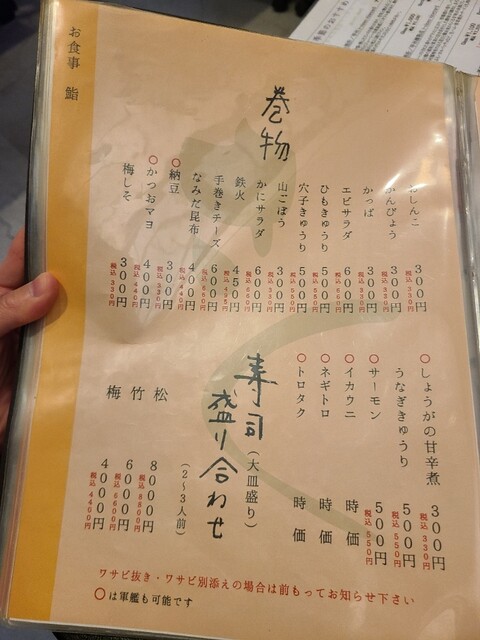 お食事 鮨
巻物
おしんこ 300円 税込330円
かんぴょう 300円 税込330円
かっぱ 300円 税込330円
エビサラダ 600円 税込660円
ひもきゅうり 500円 税込550円
穴子きゅうり 500円 税込550円
山ごぼう 300円 税込330円
かにサラダ 600円 税込660円
鉄火 450円 税込495円
手巻きチーズ 600円 税込660円
なみだ昆布 400円 税込440円
○納豆 300円 税込330円
○かつおマヨ 400円 税込440円
梅しそ 300円 税込330円
○しょうがの甘辛煮 300円 税込330円
うなぎきゅうり 500円 税込550円
○サーモン 500円 税込550円
○イカウニ 時価
○ネギトロ 時価
○トロタク 時価
寿司盛り合わせ(大皿盛り)
(2〜3人前)
松 8000円 税込8800円
竹 6000円 税込6600円
梅 4000円 税込4400円
ワサビ抜き・ワサビ別添えの場合は前もってお知らせ下さい
○は軍艦も可能です